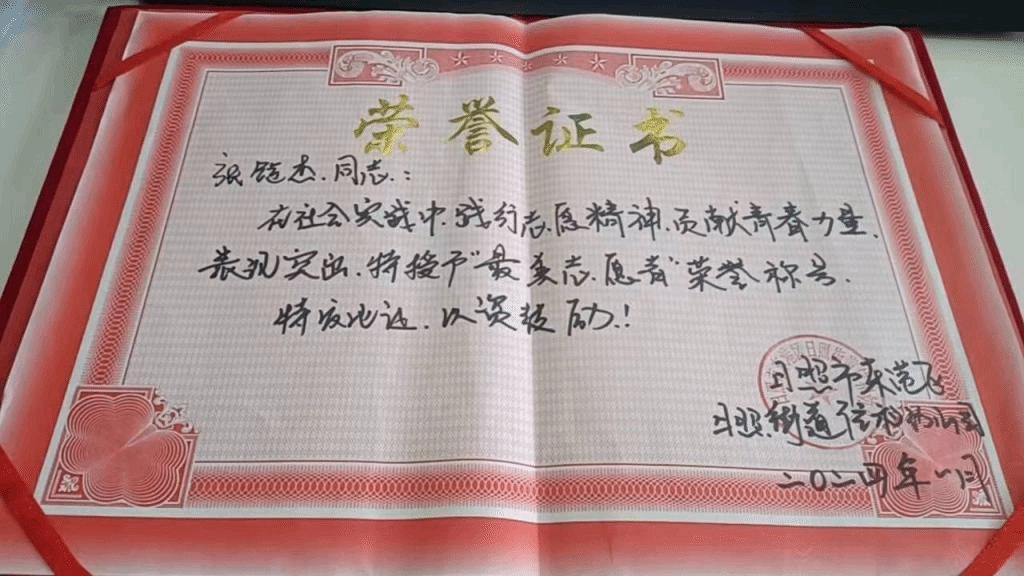 荣誉证书
张铠杰同志:
在社会实践中,践行志愿精神,贡献青春力量,
表现突出,特授予"最美志愿者"荣誉称号。
特发此证,以资鼓励!
日照市东港区
日照街道
二〇二四年一月